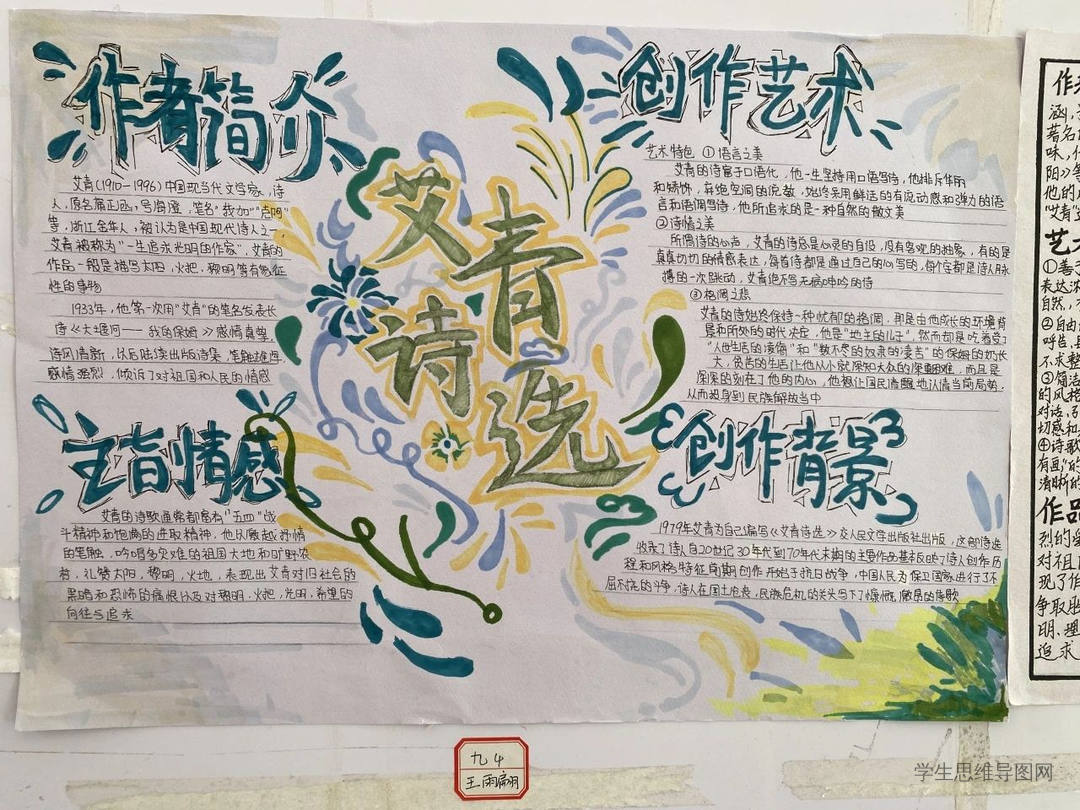 作者简介
艾青(1910-1996)中国现当代文学家、诗
人,原名蒋正涵,号海澄,笔名"莪加""克阿"
等,浙江金华人,被认为是中国现代诗人之一,
艾青被称为"一生追求光明的作家",艾青的
作品一般是描写太阳,火把,黎明等有象征
性的事物
1933年,他第一次用"艾青"的笔名发表长
诗《大堰河——我的保姆》感情真挚,
诗风清新,以后陆续出版诗集,笔触雄浑
感情强烈,倾诉了对祖国和人民的情感
主旨情感
艾青的诗歌通常都富有"五四"战
斗精神和饱满的进取精神,他以激越抒情
的笔触,吟唱多灾难的祖国大地和旷野农
村,礼赞太阳,黎明,火地,表现出艾青对旧社会的
黑暗和恐怖的痛恨以及对黎明,火把,光明,希望的
向往与追求
艾青
诗选
创作艺术
艺术特色 ①语言之美
艾青的诗富于口语化,他一生坚持用口语写诗,他排斥华丽
和矫饰,弃绝空洞的说教,始终采用鲜活的有流动感和弹力的语
言和语调写诗,他所追求的是一种自然的散文美
②诗情之美
所谓诗的心声,艾青的诗总是心灵的自设,没有客观的抽象,有的是
真真切切的情感表达,每首诗都是通过自己的心写的,每个在都是诗人脉
搏的一次跳动,艾青绝不写无病呻吟的诗
③格调之悲
艾青的诗始终保持一种忧郁的格调,那是由他成长的环境背
景和所处的时代决定,他是"地主的儿子",然而却是吃着受了
"人世生活的凌侮"和"数不尽的奴隶的凄苦"的保姆的奶长
大,贫苦的生活让他从小就深知大众的深重困难,而且是
深深的刻在了他的内心,他想让国民清醒地认清当前局势,
从而投身到民族解放当中
创作背景
1979年艾青为自己编写《艾青诗选》交人民文学出版社出版,这部诗选
收录了诗人自20世纪30年代到70年代末期的主要作品基本反映了诗人创作历
程和风格特征前期创作开始于抗日战争,中国人民为保卫国家进行了不
屈不挠的斗争,诗人在国土沦丧,民族危机的关头写下了慷慨激昂的诗歌
作
涵,
著名
味,
阳》等
他的
"艾青
艺
①善
表达
自然,
②自由
呼告,
不求整
③简洁
的风格
对话,
切感和
④诗歌
有画"的
清晰的
作品
烈的
对祖
现了作
争取
明、理
追求
九4
学生思维导图网